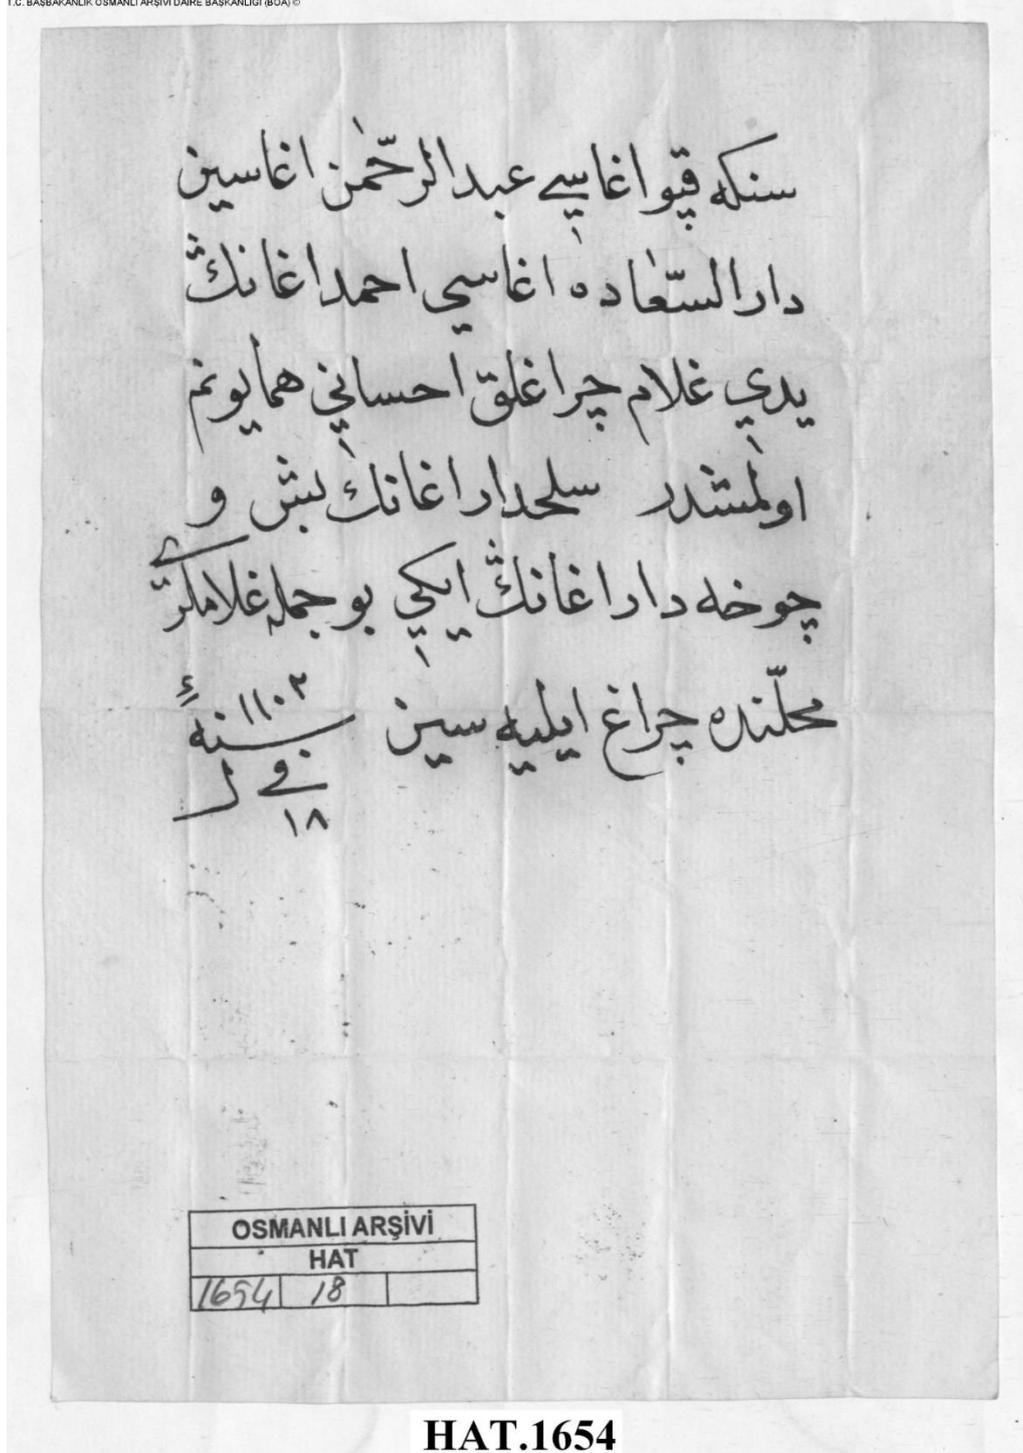 T.C. BAŞBAKANLIK OSMANLI ARŞİVİ DAİRE BAŞKANLIĞI (BOA) ©
سنكه قپو اغاسي عبد الرحمن اغاسين
دار السّعاده اغاسي احمد اغانڭ
يدي غلام چراغلق احساني همايونم
اولمشدر سلحدار اغانك بش و
چوخه دار اغانڭ ايكي بو جمله غلاملري
محلّنده چراغ ايليه سين سنهٔ ١١٠٢
في ١٨ ل
OSMANLI ARŞİVİ
HAT
1654 18
HAT.1654